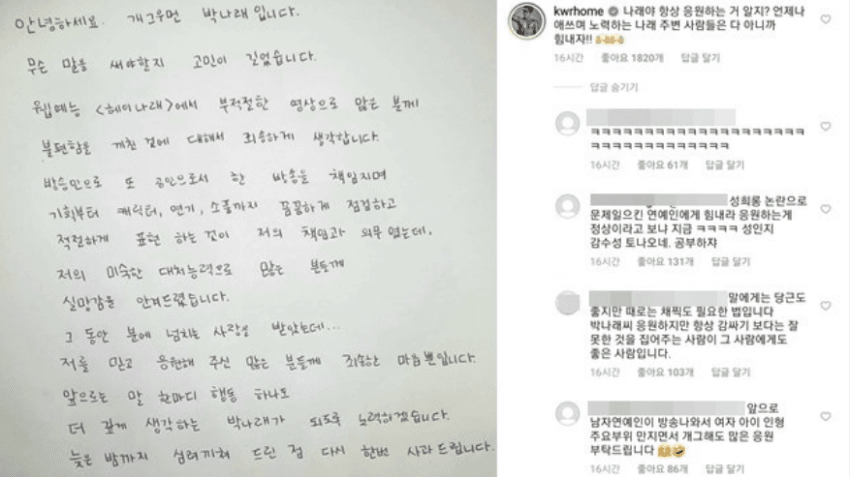 안녕하세요. 개그우먼 박나래입니다.
무슨 말을 써야할지 고민이 길었습니다.
웹예능 <헤이나래>에서 부적절한 영상으로 많은 분께
불편함을 끼친 것에 대해서 죄송하게 생각합니다.
방송인으로 또 공인으로서 한 방송을 책임지며
기획부터 캐릭터, 연기, 소품까지 꼼꼼하게 점검하고
적절하게 표현 하는 것이 저의 책임과 의무 였는데,
저의 미숙한 대처능력으로 많은 분들께
실망감을 안겨드렸습니다.
그 동안 분에 넘치는 사랑을 받았는데...
저를 믿고 응원해 주신 많은 분들께 죄송한 마음뿐입니다.
앞으로는 말 한마디 행동 하나도
더 깊게 생각하는 박나래가 되도록 노력하겠습니다.
늦은 밤까지 심려끼쳐 드린 점 다시 한번 사과드립니다.
kwrhome 나래야 항상 응원하는 거 알지? 언제나
애쓰며 노력하는 나래 주변 사람들은 다 아니까
힘내자!! 🙌🙌
16시간 좋아요 1820개 답글 달기
답글 숨기기
ㅋㅋㅋㅋㅋㅋㅋㅋㅋㅋㅋㅋㅋㅋㅋㅋㅋㅋㅋ
ㅋㅋㅋㅋㅋㅋㅋㅋㅋㅋㅋㅋ
16시간 좋아요 61개 답글 달기
성희롱 논란으로
문제일으킨 연예인에게 힘내라 응원하는게
정상이라고 보냐 지금 ㅋㅋㅋㅋ 성인지
감수성 토나오네. 공부하쟈
16시간 좋아요 131개 답글 달기
말에게는 당근도
좋지만 때로는 채찍도 필요한 법입니다
박나래씨 응원하지만 항상 감싸기 보다는 잘
못한 것을 집어주는 사람이 그 사람에게도
좋은 사람입니다.
16시간 좋아요 103개 답글 달기
앞으로
남자연예인이 방송나와서 여자 아이 인형
주요부위 만지면서 개그해도 많은 응원
부탁드립니다 🤗🤣
16시간 좋아요 86개 답글 달기